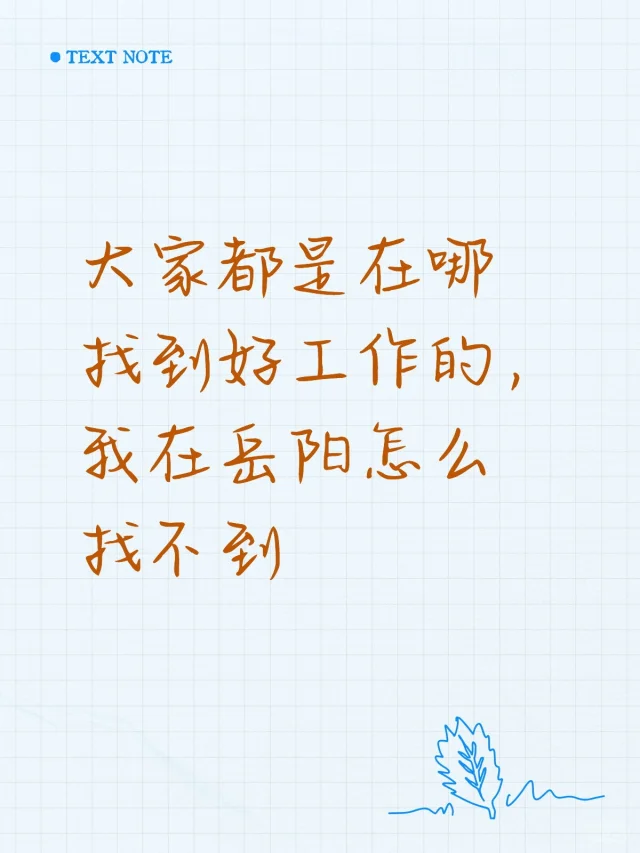 TEXT NOTE
大家都是在哪
找到好工作的，
我在岳阳怎么
找不到